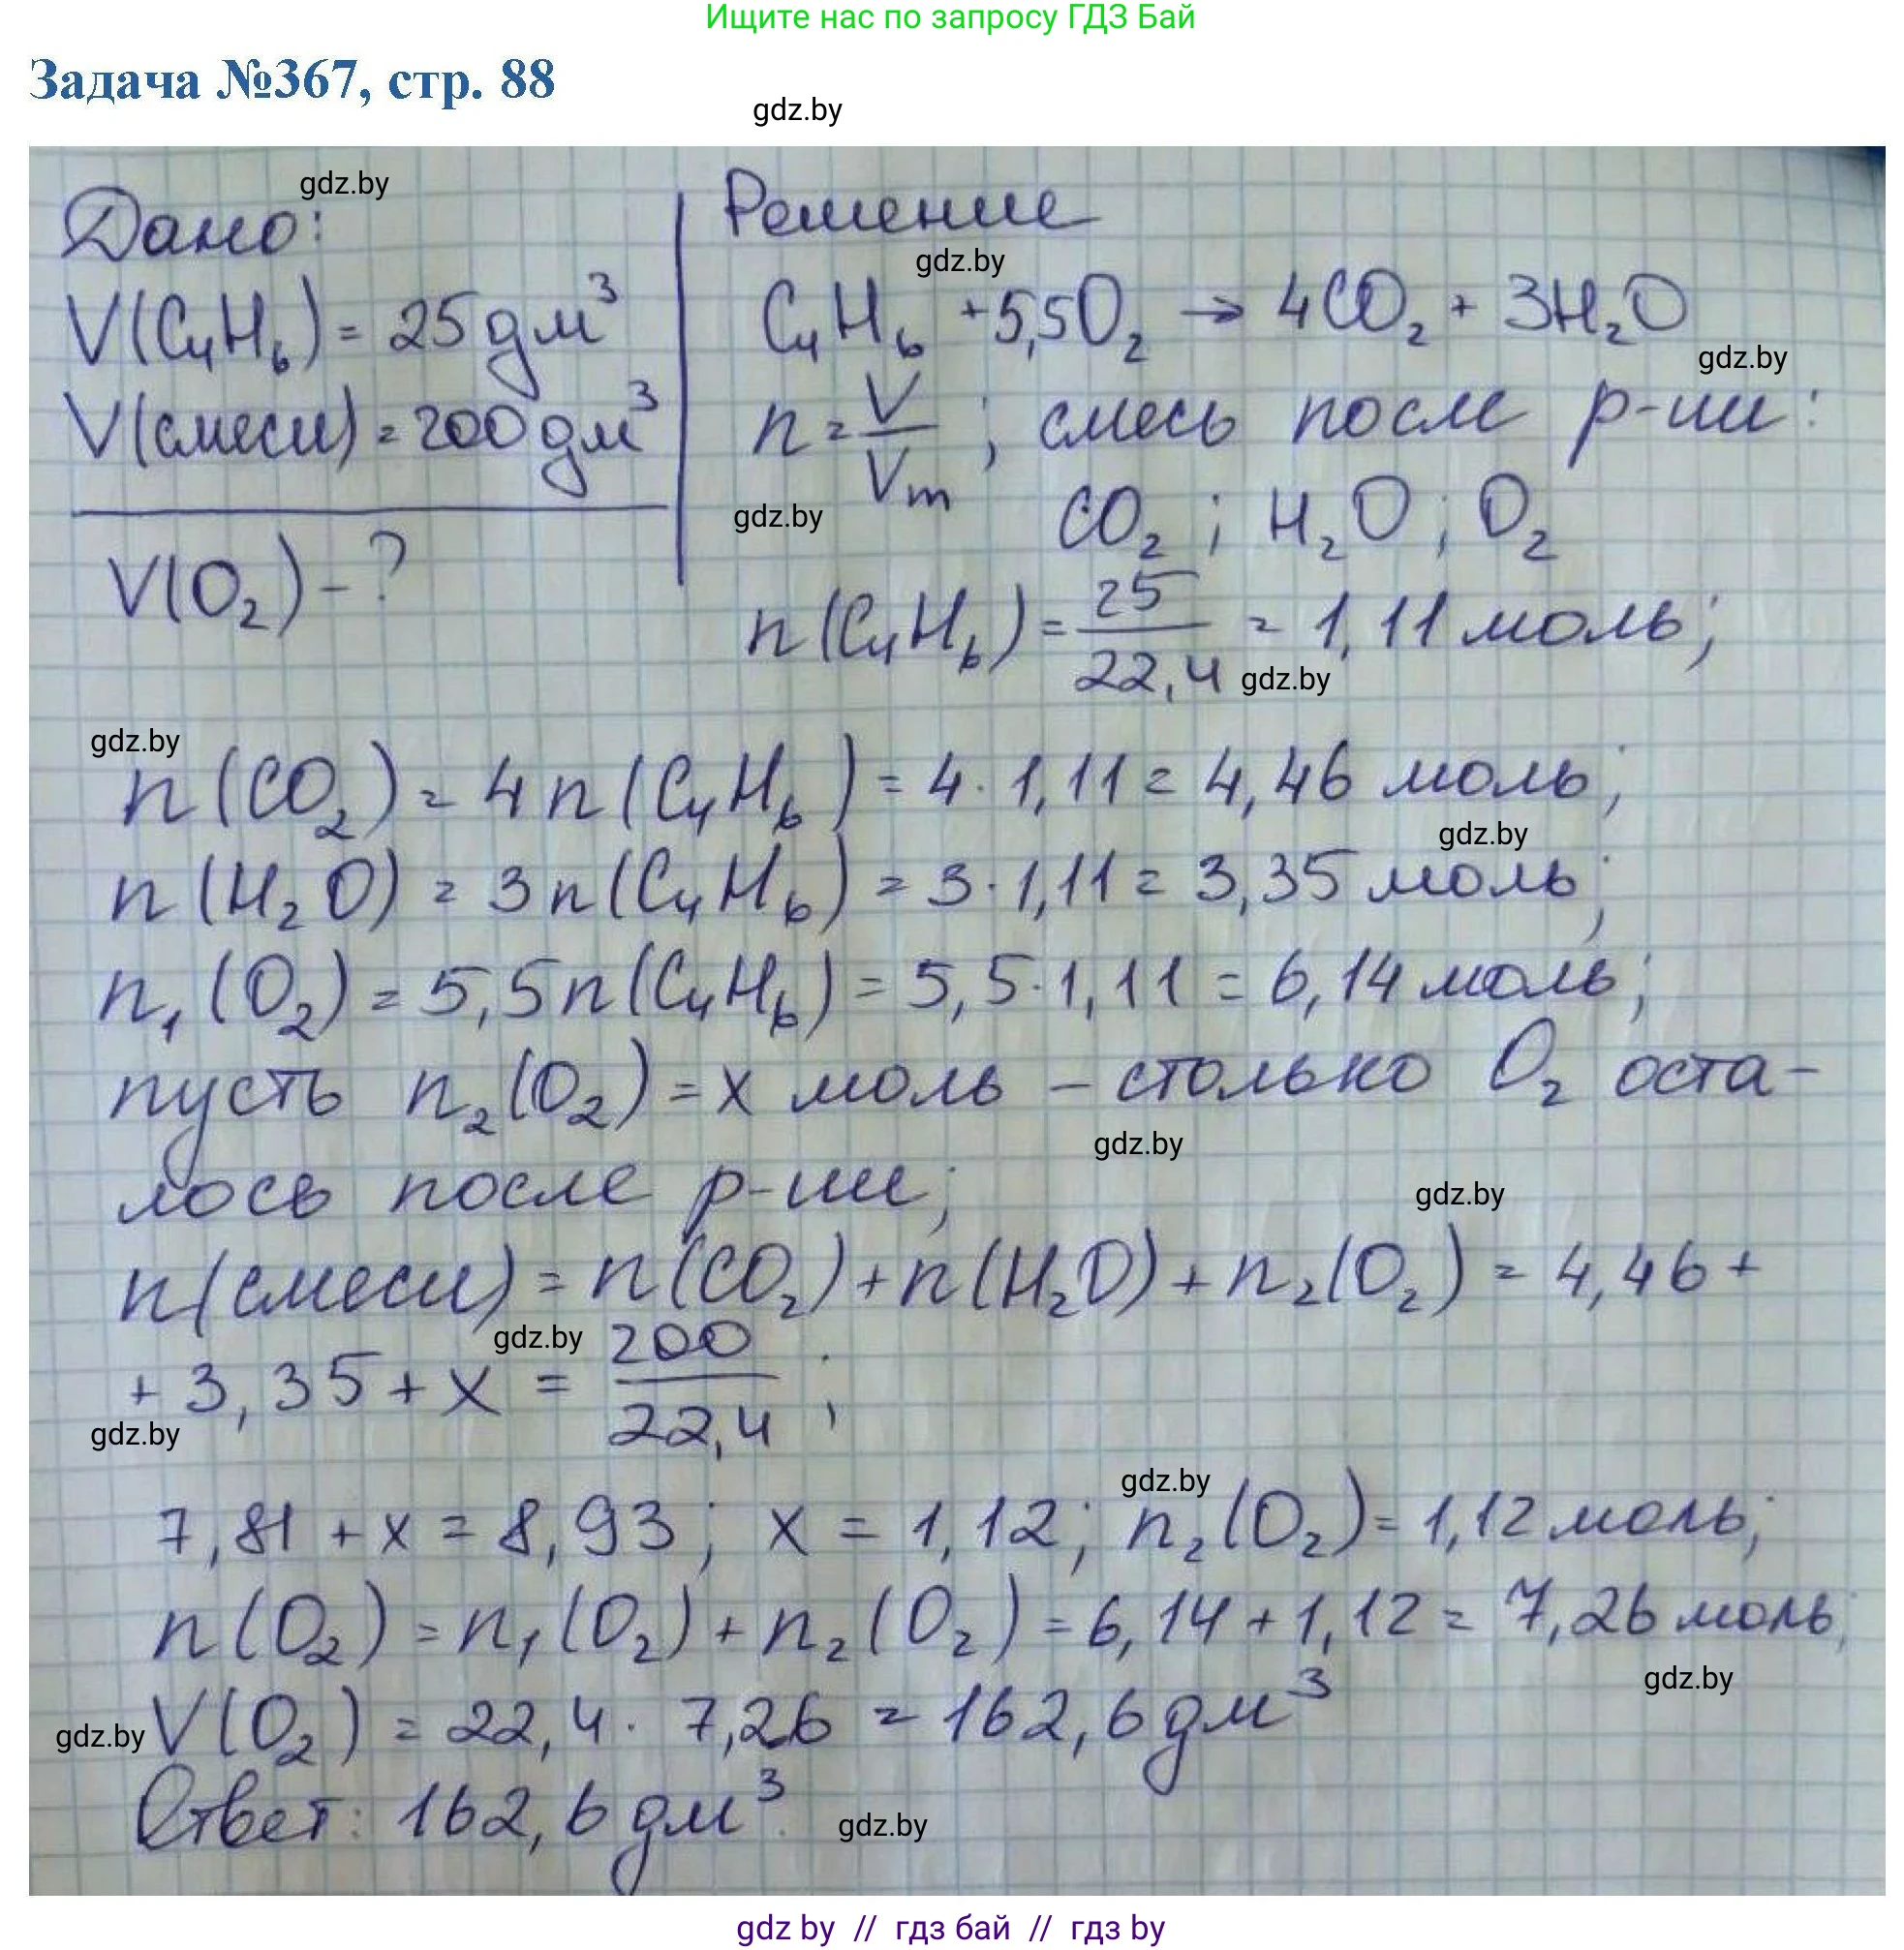 Ищите нас по запросу ГДЗ Бай
Задача №367, стр. 88
gdz.by
gdz.by
Дано:
V(C₄H₆) = 25 дм³
V(смеси) = 200 дм³
V(O₂) - ?
Решение
gdz.by
C₄H₆ + 5,5O₂ → 4CO₂ + 3H₂O
gdz.by
n = V/Vm ; смесь после р-ии:
gdz.by
CO₂ ; H₂O ; O₂
n(C₄H₆) = 25/22,4 = 1,11 моль;
gdz.by
gdz.by
n(CO₂) = 4n(C₄H₆) = 4·1,11 = 4,46 моль;
gdz.by
n(H₂O) = 3n(C₄H₆) = 3·1,11 = 3,35 моль;
n₁(O₂) = 5,5n(C₄H₆) = 5,5·1,11 = 6,14 моль;
пусть n₂(O₂) = x моль – столько O₂ оста-
gdz.by
лось после р-ии;
gdz.by
n(смеси) = n(CO₂) + n(H₂O) + n₂(O₂) = 4,46 +
gdz.by
+ 3,35 + x = 200/22,4 ;
gdz.by
gdz.by
7,81 + x = 8,93; x = 1,12; n₂(O₂) = 1,12 моль;
n(O₂) = n₁(O₂) + n₂(O₂) = 6,14 + 1,12 = 7,26 моль;
gdz.by
gdz.by
V(O₂) = 22,4 · 7,26 = 162,6 дм³
Ответ: 162,6 дм³.
gdz.by
gdz by // гдз бай // гдз by